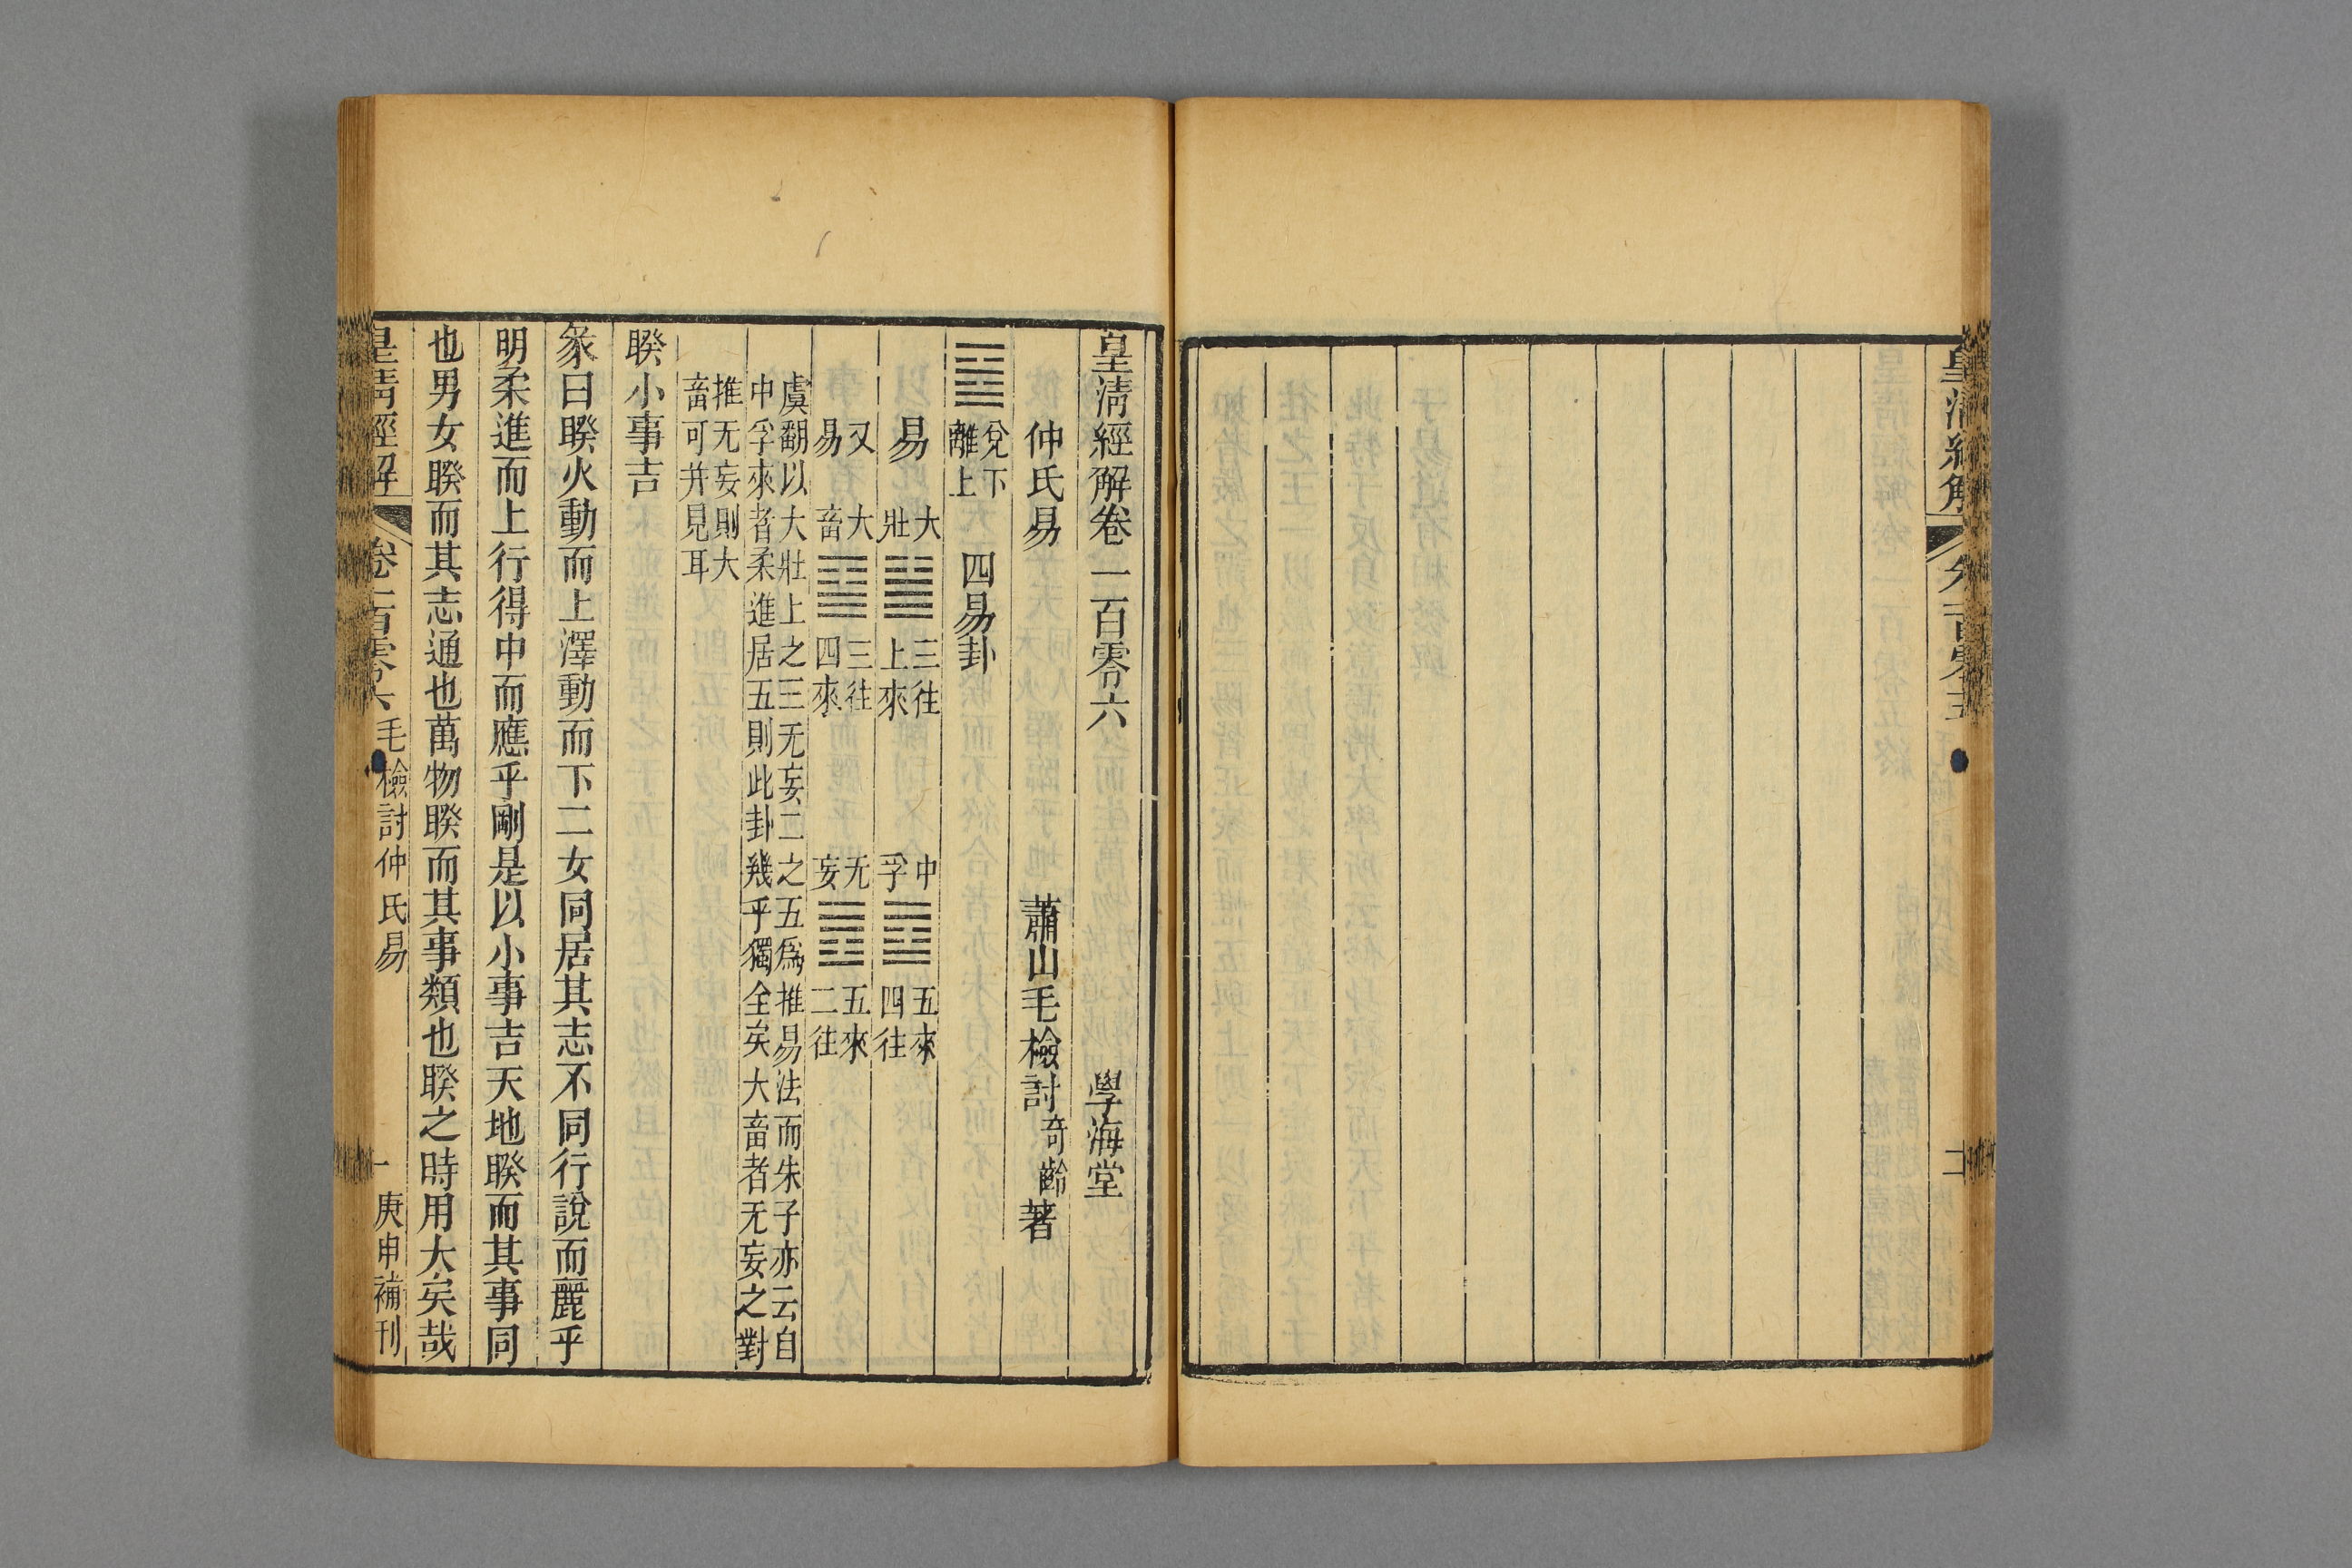 皇清經解
皇清經解卷一百零六
學海堂
仲氏易
蕭山毛檢討奇齡著
兌下
離上
四易卦
易
大壯
三往
上來
中孚
五來
四往
又易
大畜
三往
四來
无妄
五來
二往
虞翻以大壯上之三无妄二之五爲推易法而朱子亦云自
中孚來者柔進居五則此卦幾乎獨全矣大畜者无妄之對
推无妄則大
畜可并見耳
睽小事吉
彖曰睽火動而上澤動而下二女同居其志不同行說而麗乎
明柔進而上行得中而應乎剛是以小事吉天地睽而其事同
也男女睽而其志通也萬物睽而其事類也睽之時用大矣哉
皇清經解
卷一百零六
毛檢討仲氏易
一
庚申補刊